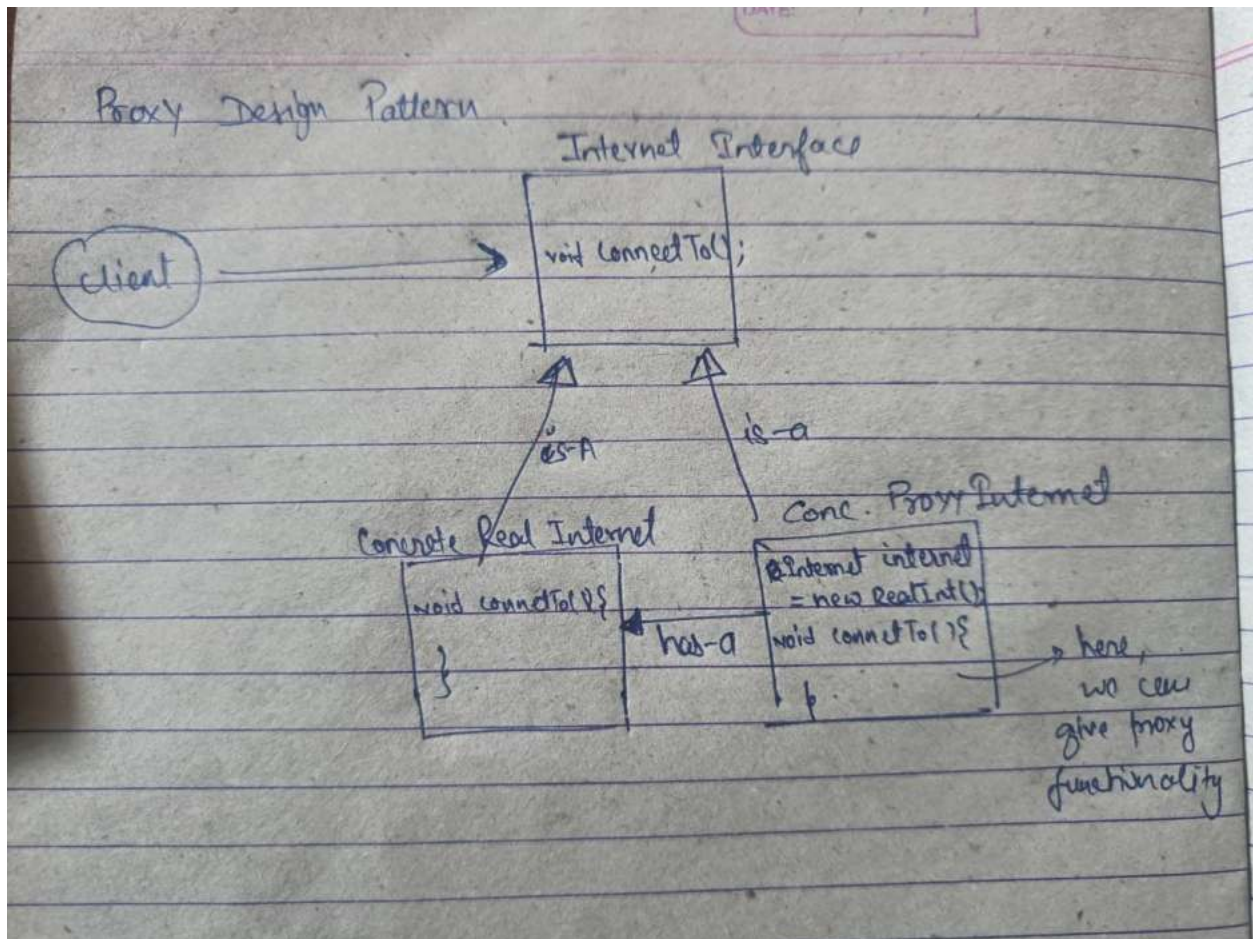 DATE:
Proxy Design Pattern
Internet Interface
client
void connectTo();
is-A
is-a
Concrete Real Internet
void connetTo(){
}
has-a
Conc. Proxy Internet
Internet internet
= new RealInt()
void connetTo(){
}
here,
we can
give proxy
functionality